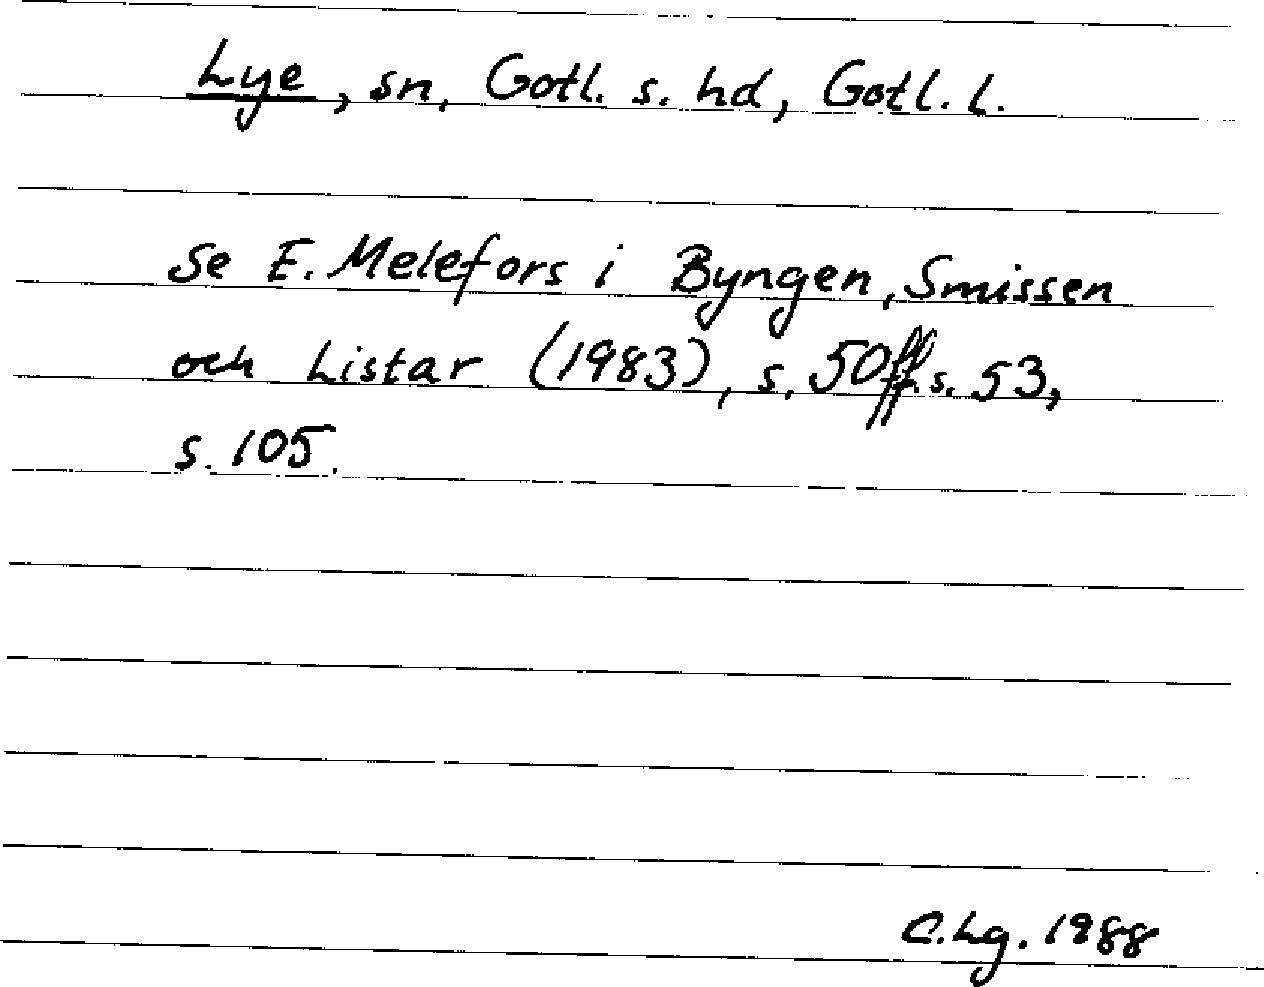 Lye, sn, Gotl. s. hd, Gotl. l.
Se E. Melefors i Byngen, Smissen
och Listar (1983), s. 50ff. s. 53,
s. 105.
C.Lg. 1988